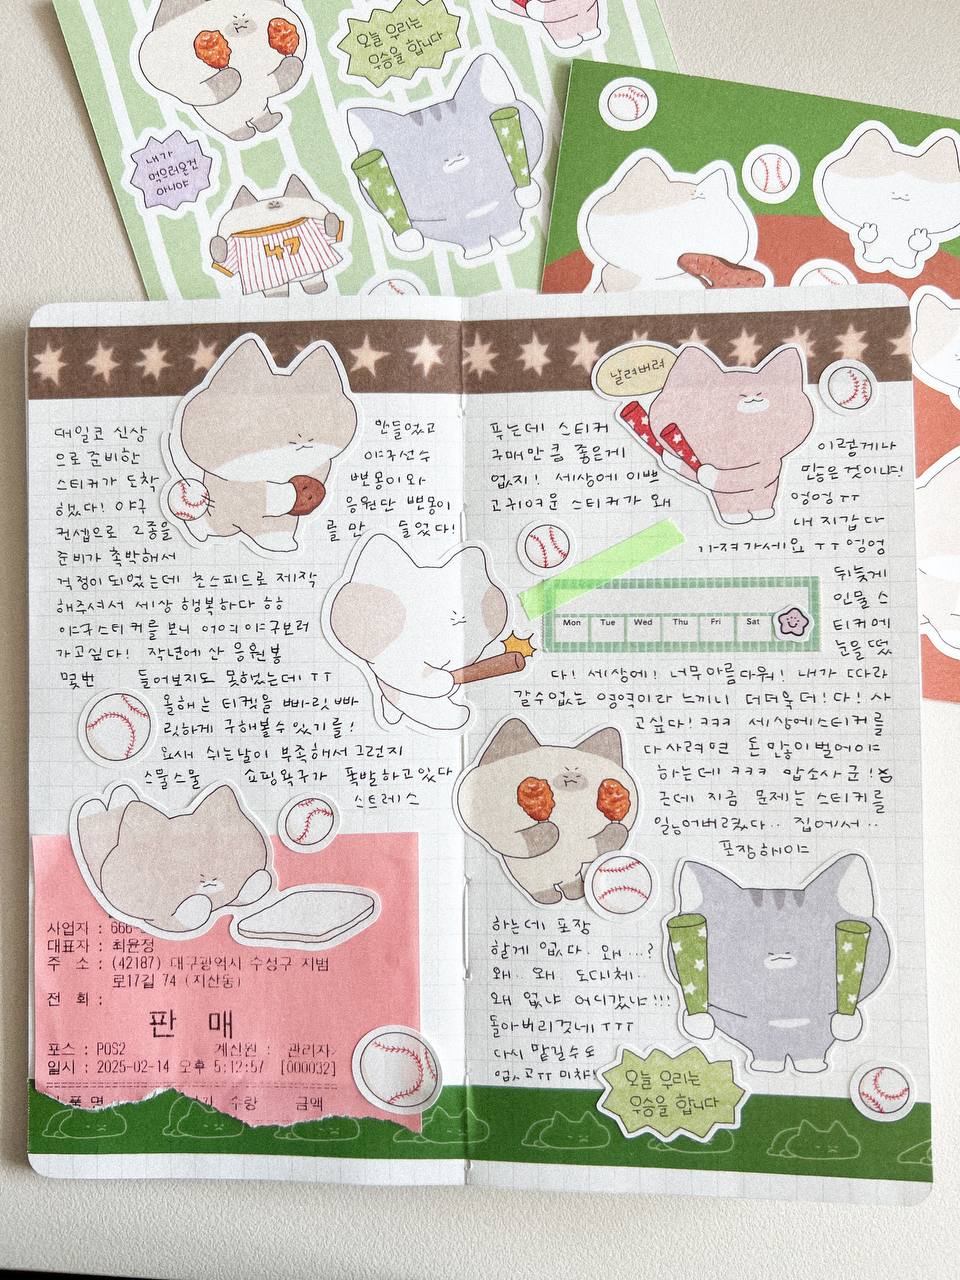 오늘 우리는
우승을 합니다
내가
먹으러온건
아니야
47
대일코 신상
으로 준비한
스티커가 도착
했다! 야구
컨셉으로 2종을
준비가 촉박해서
걱정이 되었는데 초스피드로 제작
해주셔서 세상 행복하다 ㅎㅎ
야구스티커를 보니 어여 야구보러
가고싶다! 작년에 산 응원봉
몇번 들어보지도 못했는데 ㅜㅜ
올해는 티켓을 빠릿 빠
릿하게 구해볼수있기를!
요새 쉬는날이 부족해서 그런지
스물스물 쇼핑욕구가 폭발하고있다
스트레스
만들었고
야구선수
뽀몽이와
응원단 뽀몽이
를 만들었다!
사업자 : 666-
대표자 : 최윤정
주 소 : (42187) 대구광역시 수성구 지범
로17길 74 (지산동)
전 화 :
판 매
포스 : POS2 계산원 : 관리자
일시 : 2025-02-14 오후 5:12:57 [000032]
수량 금액
푸는데 스티커
구매만큼 좋은게
없지! 세상에 이쁘
고귀여운 스티커가 왜
날려버려
이렇게나
많은 것이냐!
엉엉 ㅜㅜ
내 지갑 다
가져가세요 ㅜㅜ 엉엉
뒤늦게
인물 스
티커에
눈을 떴
Mon Tue Wed Thu Fri Sat
다! 세상에! 너무아름다워! 내가 따라
갈수없는 영역이라 느끼니 더더욱 더! 다! 사
고싶다! ㅋㅋㅋ 세상에스티커를
다사려면 돈 많이벌어야
하는데 ㅋㅋㅋ 맙소사군!
근데 지금 문제는 스티커를
잃어버렸다.. 집에서..
포장해야
하는데 포장
할게 없다. 왜...?
왜.. 왜. 도대체..
왜 없냐 어디갔냐!!!
돌아버리겠네 ㅜㅜㅜ
다시 맡길수도
없고ㅜㅜ 미챠
오늘 우리는
우승을 합니다